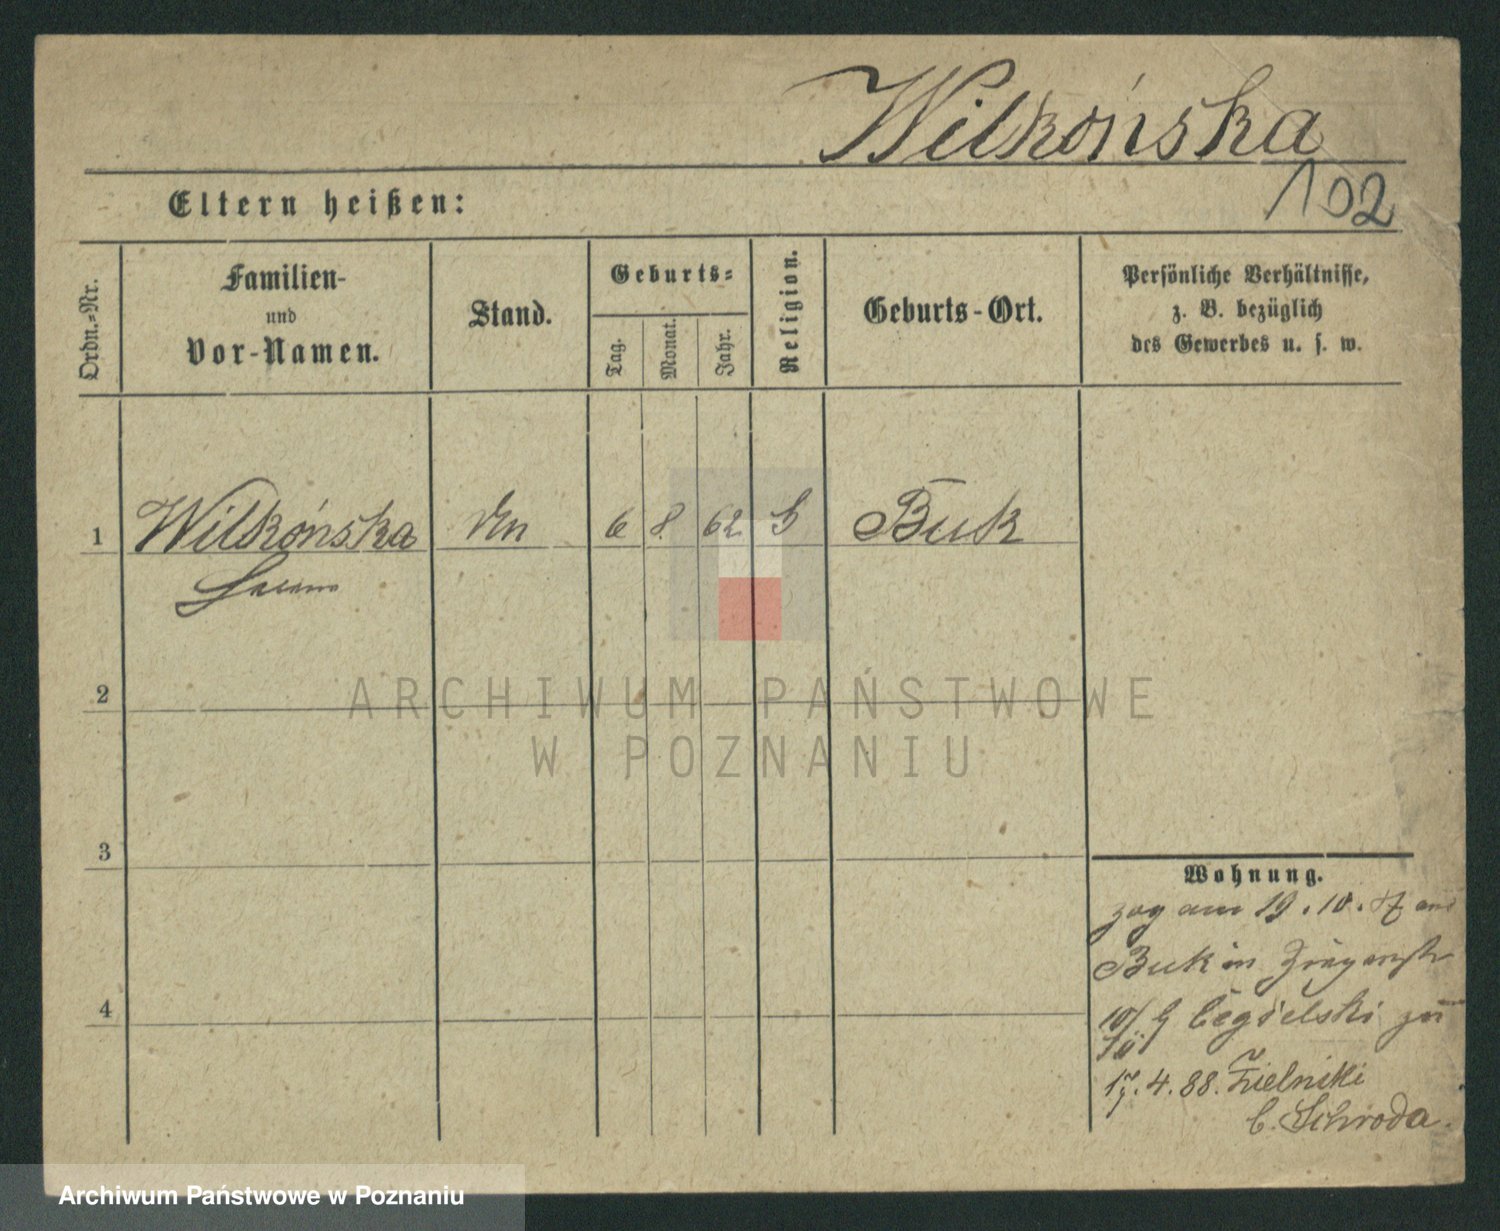 Wilkońska
102
Eltern heißen:
Ordn.-Nr.
Familien-
und
Vor-Namen.
Stand.
Geburts-
Tag.
Monat.
Jahr.
Religion.
Geburts-Ort.
Persönliche Verhältnisse,
z. B. bezüglich
des Gewerbes u. s. w.
1 Wilkońska 6 8. 62 Buk
2
3
4
Wohnung.
zog am 19.10. aus
Buk in
10/ Cegielski zu
17.4.88. Zielniki
b. Schroda.
ARCHIWUM PAŃSTWOWE
W POZNANIU
Archiwum Państwowe w Poznaniu